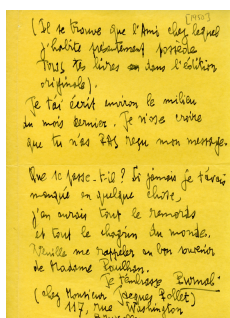 [1950]
(Il se trouve que l'Ami chez lequel
j'habite présentement possède
TOUS tes livres dans l'édition
originale).
Je t'ai écrit environ le milieu
du mois dernier. Je n'ose croire
que tu n'as PAS reçu mon message.
Que se passe-t-il ? Si jamais je t'avais
manqué en quelque chose,
j'en aurais tout le remords
et tout le chagrin du monde.
Veuille me rappeler au bon souvenir
de Madame Paulhan.
Je t'embrasse
(chez Monsieur Jacques Pollet)
117, rue Washington
Bruxelles